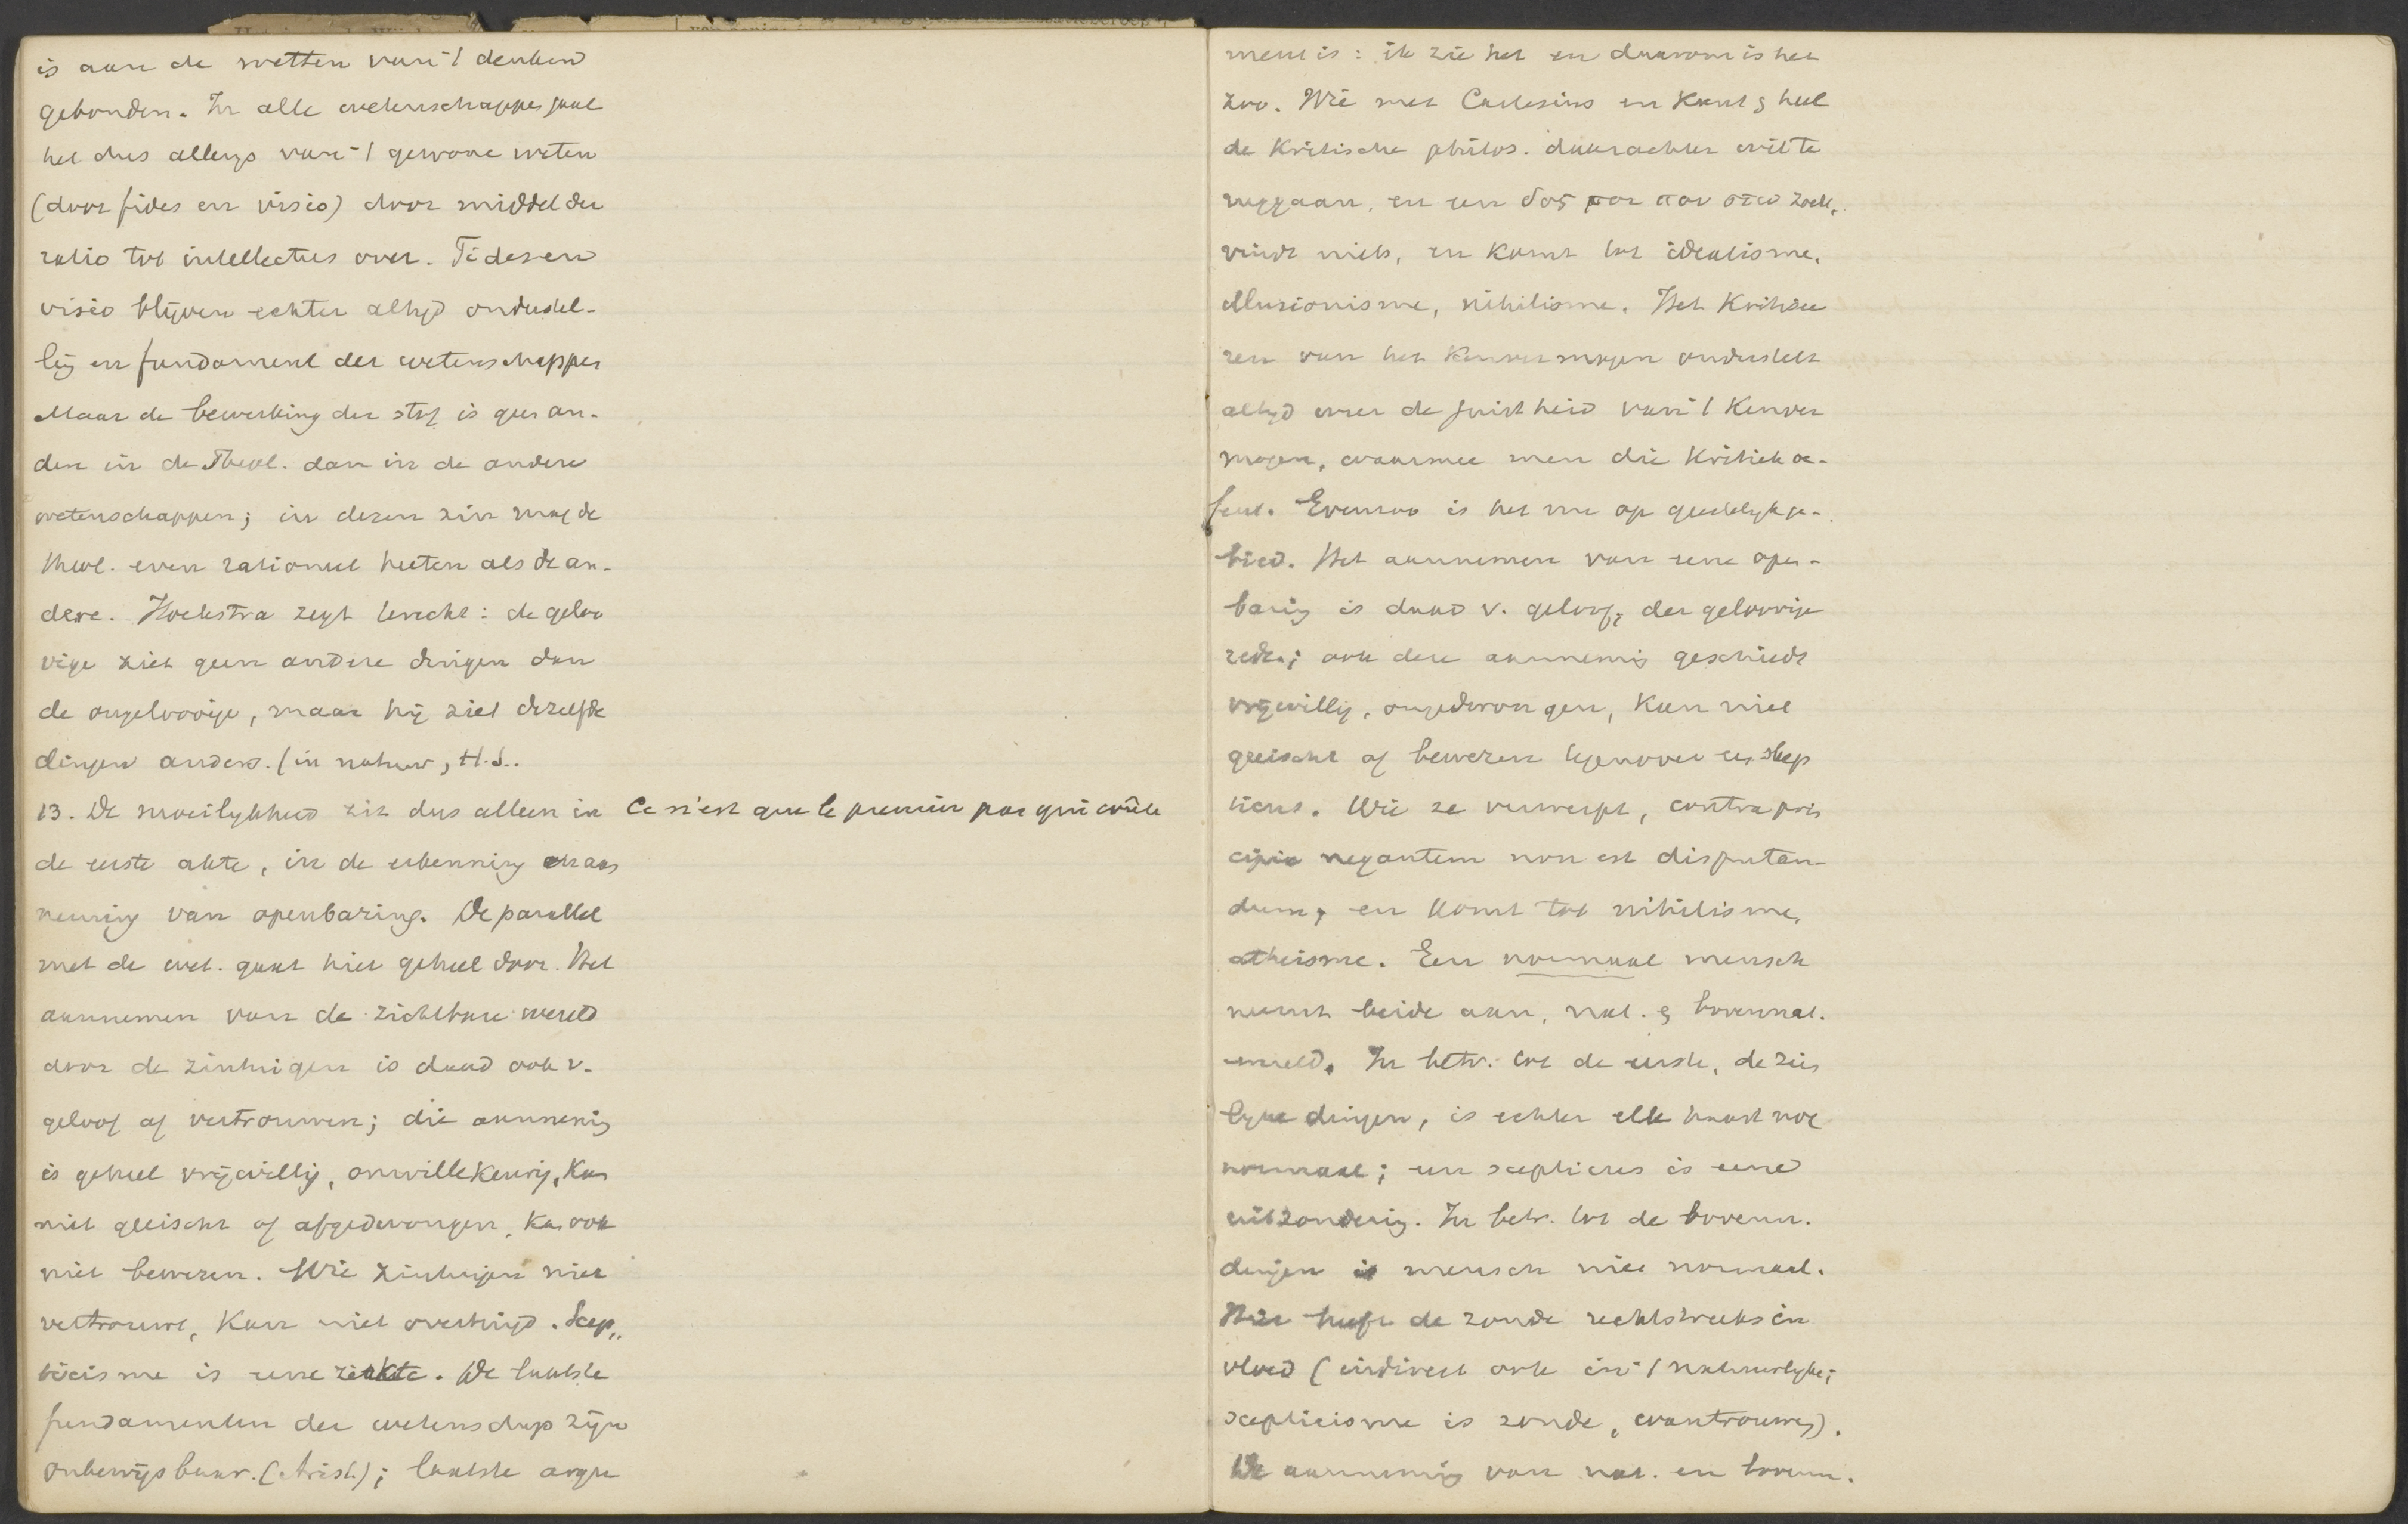 is aan de wetten van 't denken
gebonden. In alle wetenschappen gaat
het dus allengs van 't gewone weten
(door fides en visio) door middel der
ratio tot intellectus over. Fides en
visio blijven echter altijd onderstel-
ling en fundament der wetenschappen
Maar de bewerking der stof is geen an-
dere in de Theol. dan in de andere
wetenschappen; in dezen zin mag de
theol. even rationeel heeten als de an-
dere. Hoekstra zegt terecht: de geloo
vige ziet geen andere dingen dan
de ongeloovige, maar hij ziet dezelfde
dingen anders. (in natuur, H.S..
13. De moeilijkheid zit dus alleen in
de eerste akte, in de erkenning en aan
neming van openbaring. De parallel
met de wet. gaat hier geheel door. Het
aannemen van de zichtbare wereld
door de zintuigen is daad ook v.
geloof of vertrouwen; die aanneming
is geheel vrijwillig, onwillekeurig, kan
niet geeischt of afgedwongen, kan ook
niet bewezen. Wie zintuigen niet
vertrouwt, kan niet overtuigd. Scep„
ticisme is eene ziekte. De laatste
fundamenten der wetenschap zijn
onbewijsbaar. (Arist.); laatste argu
Ce n'est que le premier pas qui coûte
ment is: ik zie het en daarom is het
zoo. Wie met Cartesius en Kant & heel
de Kritische philos. daarachter wil te
ruggaan, en een δος μοι που στω zoekt,
vindt niets, en komt tot idealisme,
illusionisme, nihilisme. Het Kritisee
ren van het kenvermogen onderstelt
altijd weer de juistheid van 't kenver
mogen, waarmee men die Kritiek oe-
fent. Evenzoo is het nu op geestelijk ge-
bied. Het aannemen van eene open-
baring is daad v. geloof, der geloovige
rede; ook deze aanneming geschiedt
vrijwillig, ongedwongen, kan niet
geeischt of bewezen tegenover een skep
ticus. Wie ze verwerpt, contra prin
cipia negantem non est disputan-
dum, en komt tot nihilisme,
atheisme. Een normaal mensch
neemt beide aan, nat. & bovennat.
wereld. In betr. tot de eerste, de zin
lijke dingen, is echter elk haast nog
normaal; een scepticus is eene
uitzondering. In betr. tot de bovenn.
dingen is mensch niet normaal.
Hier heeft de zonde rechtstreeks in
vloed (indirect ook in 't natuurlijke;
scepticisme is zonde, wantrouwen).
De aanneming van nat. en bovenn.